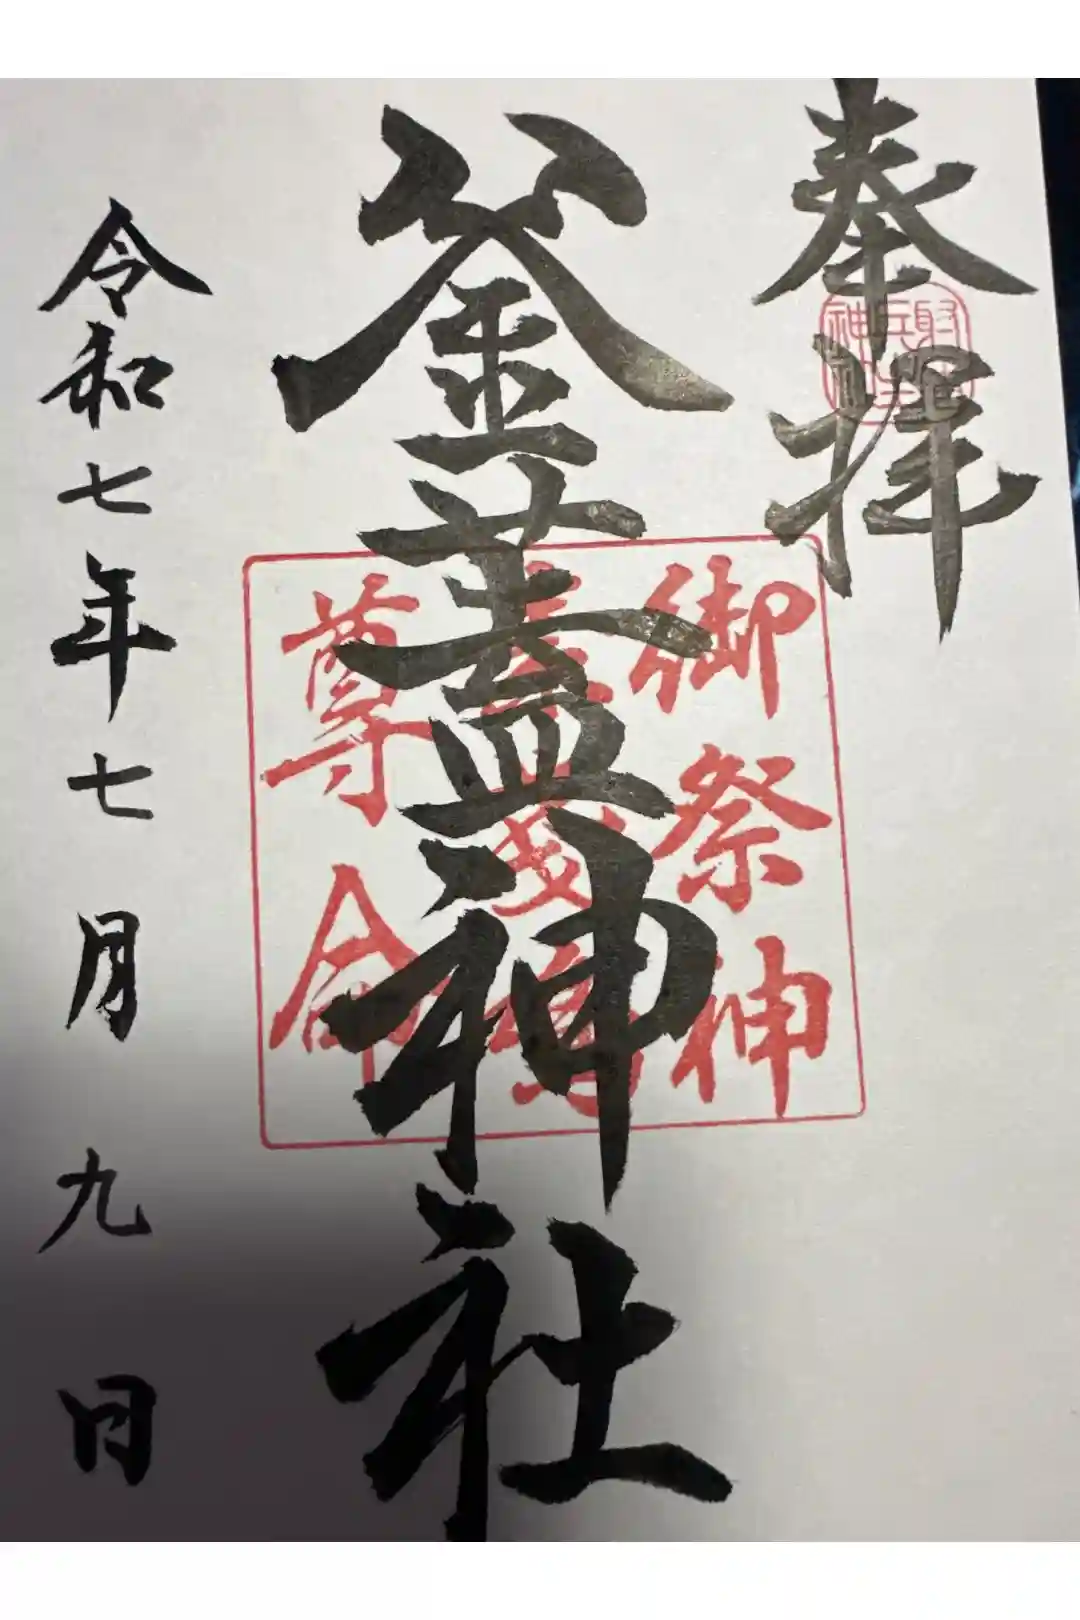 奉拝
釜蓋神社
御祭神
素戔嗚
尊命
令和七年七月九日